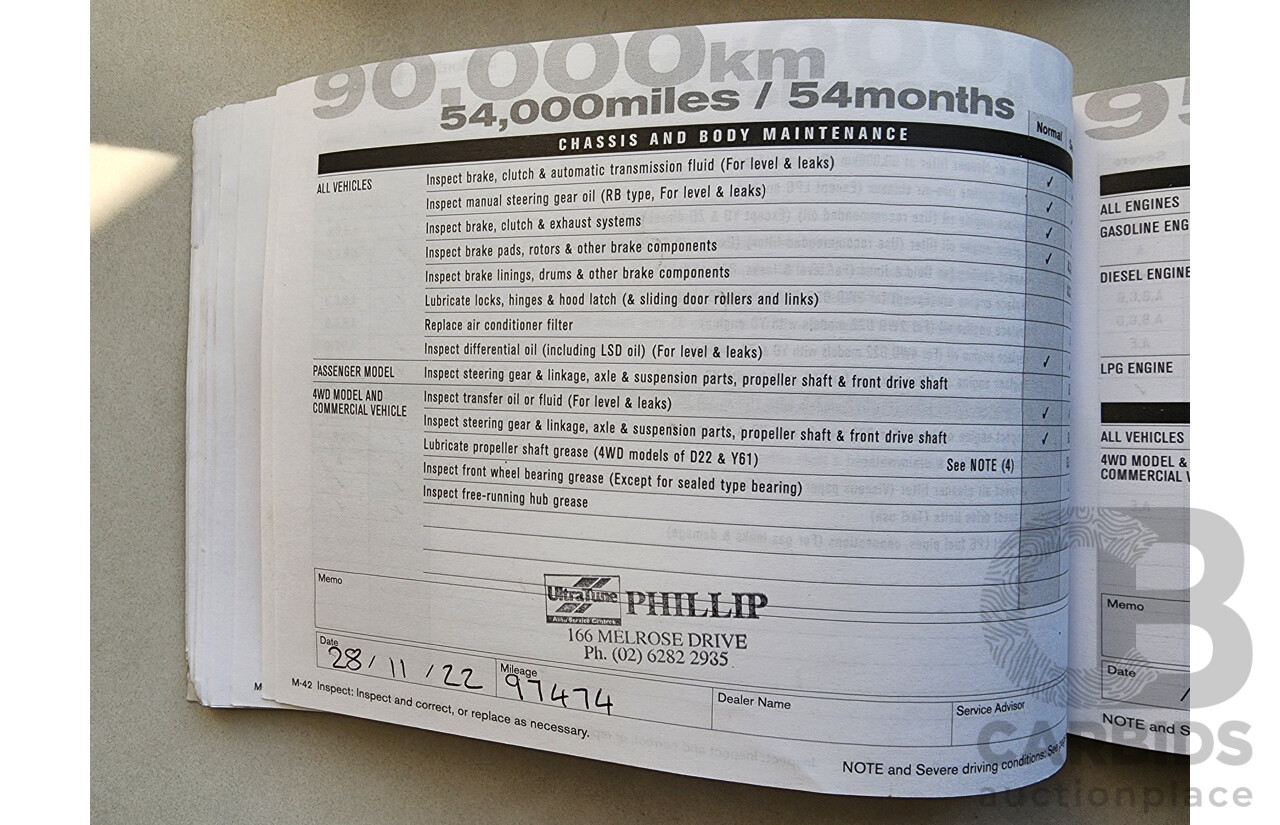 90,000km
54,000miles / 54months
CHASSIS AND BODY MAINTENANCE
Normal
ALL VEHICLES
Inspect brake, clutch & automatic transmission fluid (For level & leaks) ✓
Inspect manual steering gear oil (RB type, For level & leaks) ✓
Inspect brake, clutch & exhaust systems ✓
Inspect brake pads, rotors & other brake components ✓
Inspect brake linings, drums & other brake components
Lubricate locks, hinges & hood latch (& sliding door rollers and links)
Replace air conditioner filter
Inspect differential oil (including LSD oil) (For level & leaks) ✓
PASSENGER MODEL
Inspect steering gear & linkage, axle & suspension parts, propeller shaft & front drive shaft
4WD MODEL AND
COMMERCIAL VEHICLE
Inspect transfer oil or fluid (For level & leaks) ✓
Inspect steering gear & linkage, axle & suspension parts, propeller shaft & front drive shaft ✓
Lubricate propeller shaft grease (4WD models of D22 & Y61) See NOTE (4)
Inspect front wheel bearing grease (Except for sealed type bearing)
Inspect free-running hub grease
Memo
UltraTune PHILLIP
Auto Service Centres
166 MELROSE DRIVE
Ph. (02) 6282 2935
Date
28 / 11 / 22
Mileage
97474
Dealer Name
Service Advisor
M-42 Inspect: Inspect and correct, or replace as necessary.
NOTE and Severe driving conditions: See
95
ALL ENGINES
GASOLINE ENG
DIESEL ENGINE
LPG ENGINE
ALL VEHICLES
4WD MODEL &
COMMERCIAL V
Memo
Date
NOTE and S
CB
CARBIDS
auctionplace